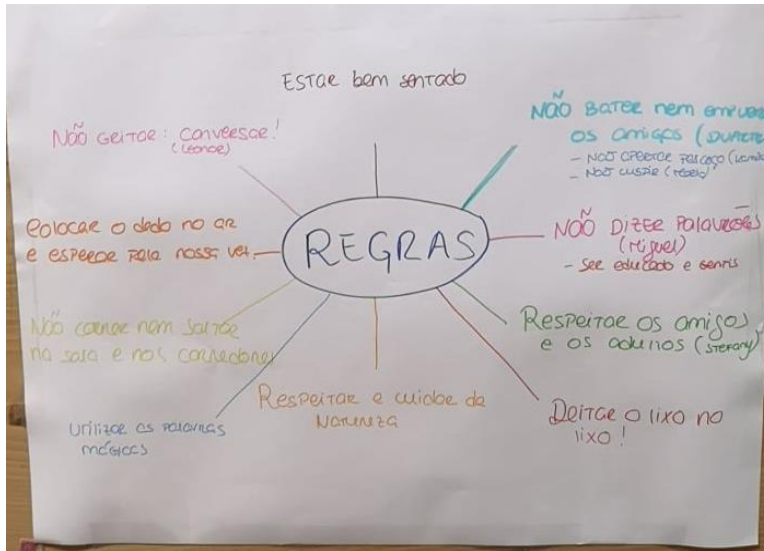 REGRAS
ESTAR bem sentado
NÃO BATER nem empurr
os amigos (DUARTE
- NÃO APERTAR PESCOÇO
- NÃO CUSPIR
NÃO DIZER PALAVRÕES
(Miguel)
- SER educado e gentis
RESPEITAR os amigos
e os adultos (STEFANY)
DEITAR O LIXO NO
LIXO!
RESPEITAR e cuidar da
NATUREZA
UTILIZAR AS PALAVRAS
MÁGICAS
NÃO correr nem SALTAR
na sala e nos corredores
COLOCAR O dedo no AR
e ESPERAR PELA nossa vez
NÃO GRITAR: CONVERSAR!
(Leonor)